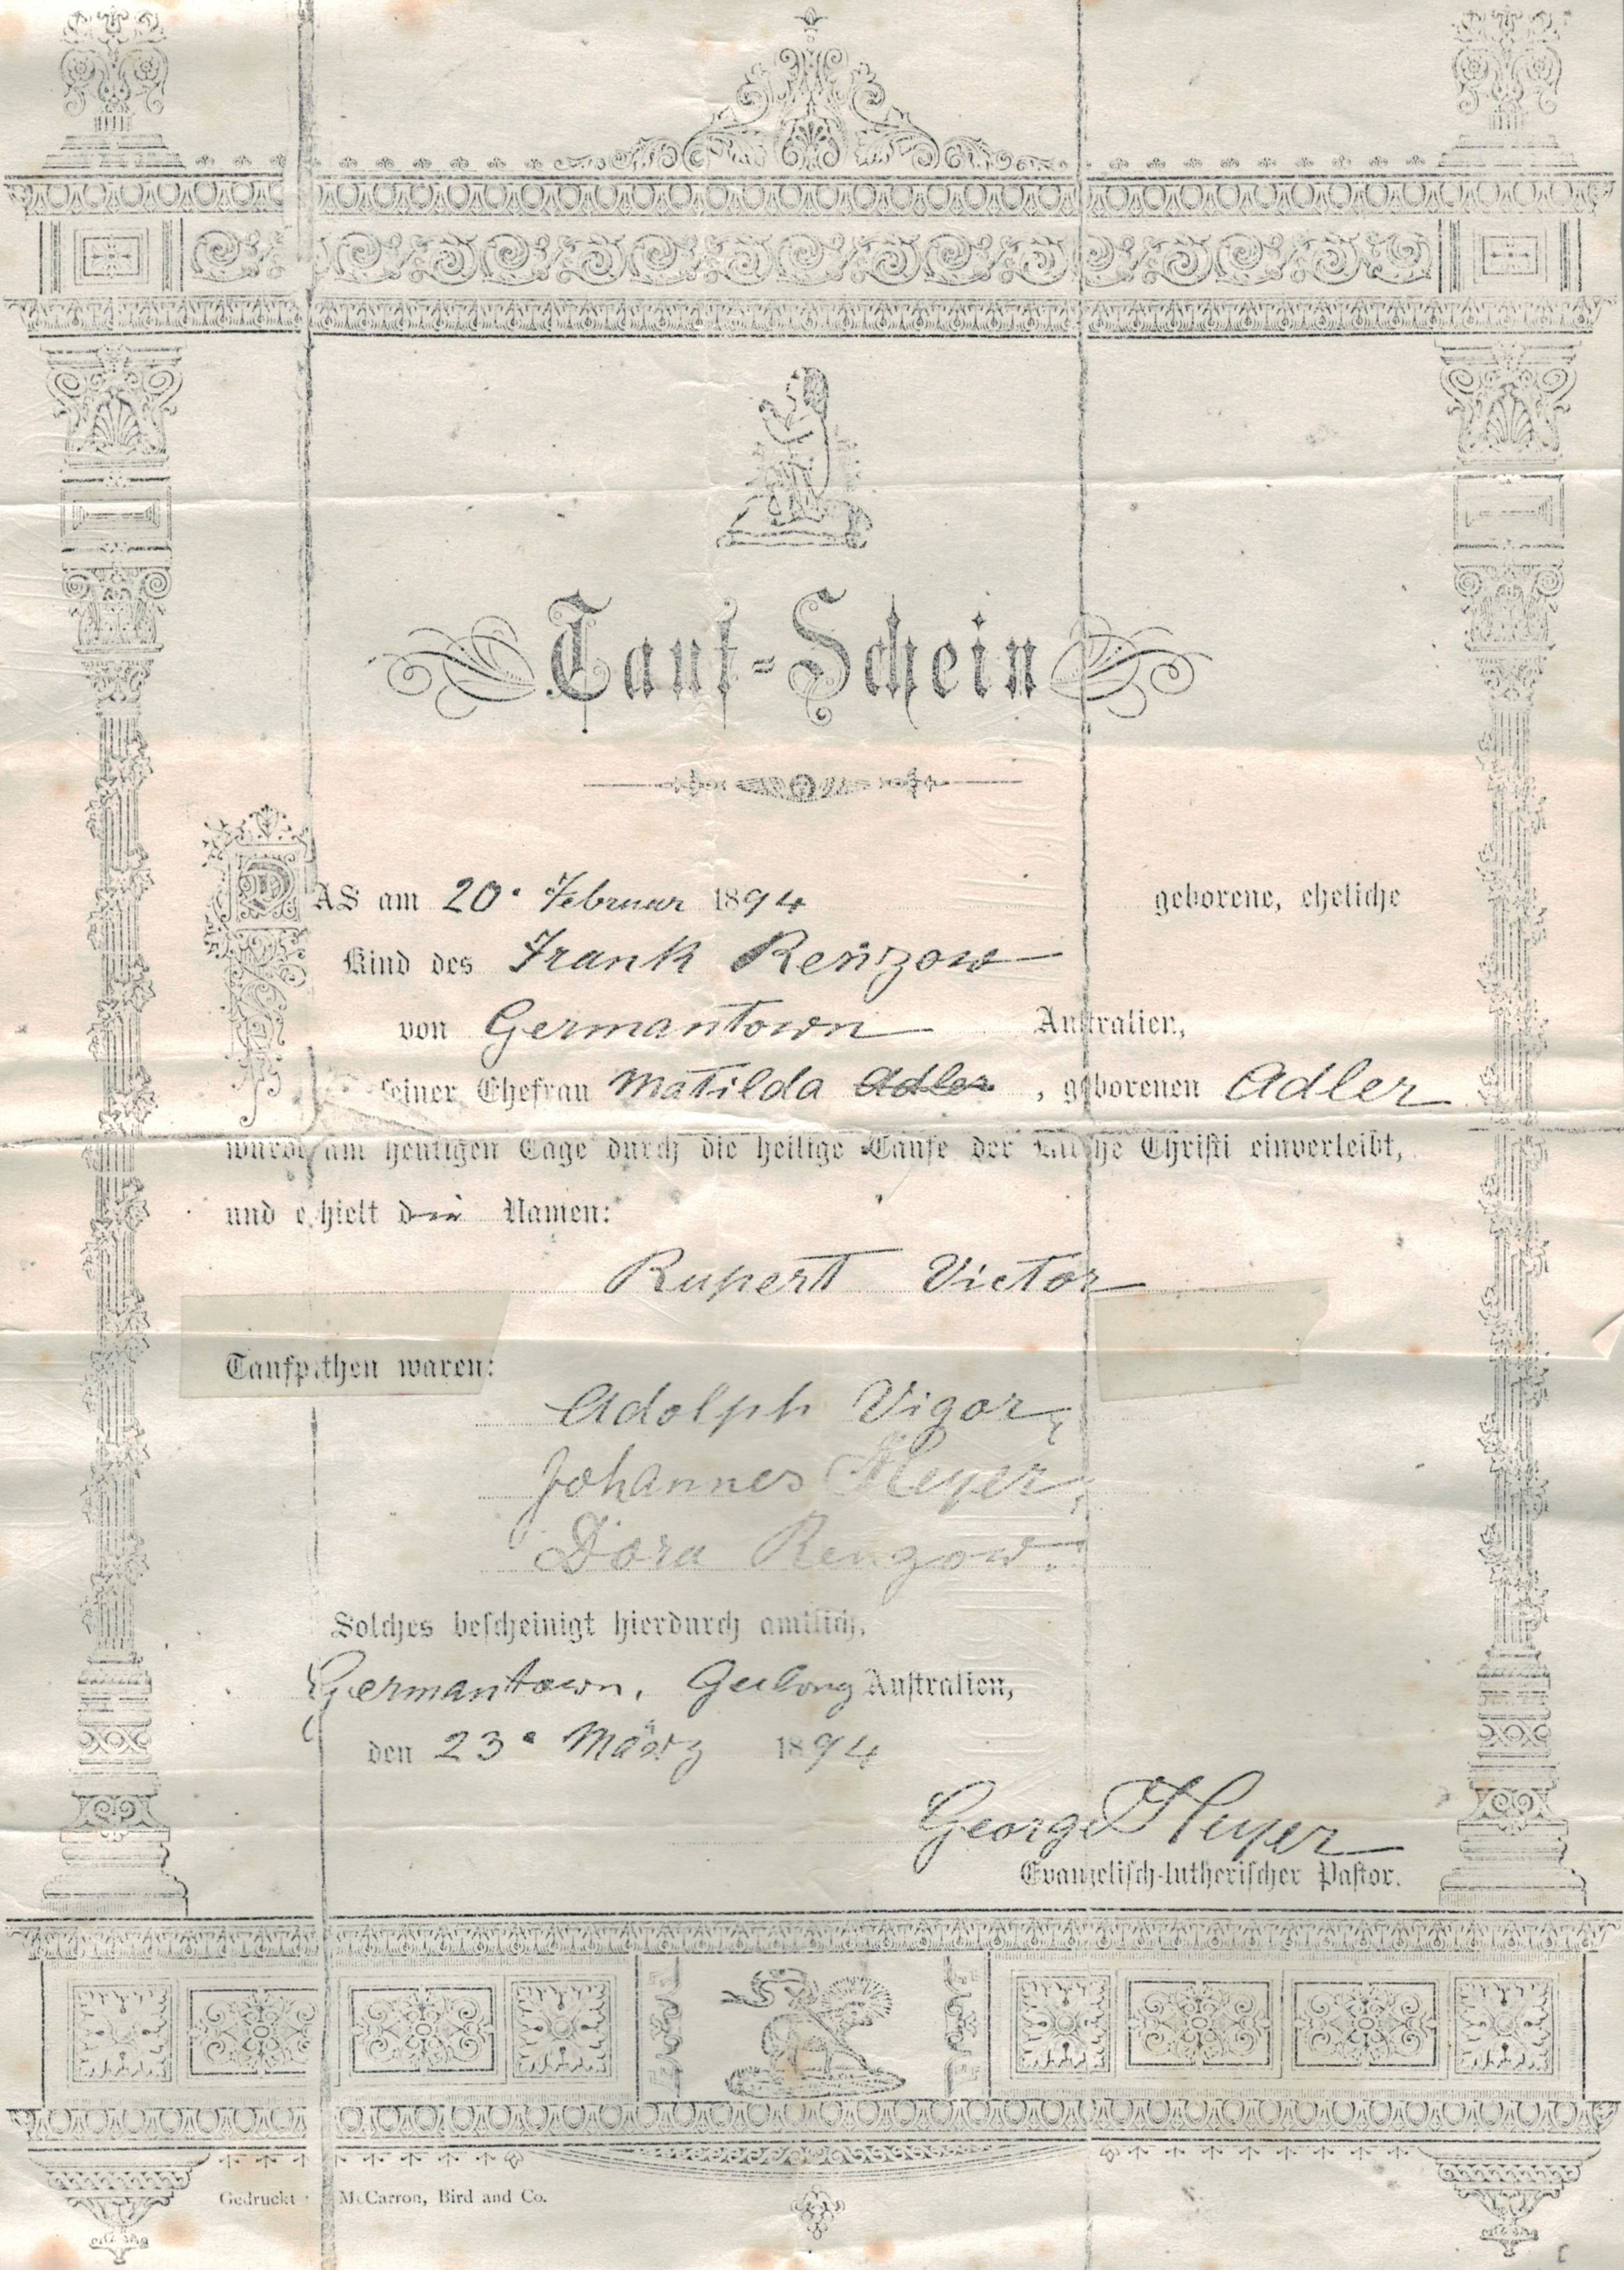 Tauf-Schein
DAS am 20. Februar 1894 geborene, eheliche
Kind des Frank Renzow
von Germantown Australien,
seiner Ehefrau Matilda Adler, geborenen Adler
wurde am heutigen Tage durch die heilige Taufe der Kirche Christi einverleibt,
und erhielt die Namen:
Rupert Victor
Taufpathen waren:
Adolph Vigor,
Johannes Meyer,
Dora Renzow.
Solches bescheinigt hierdurch amtlich,
Germantown, Geelong Australien,
den 23. März 1894
George Heyer
Evangelisch-lutherischer Pastor.
Gedruckt McCarron, Bird and Co.